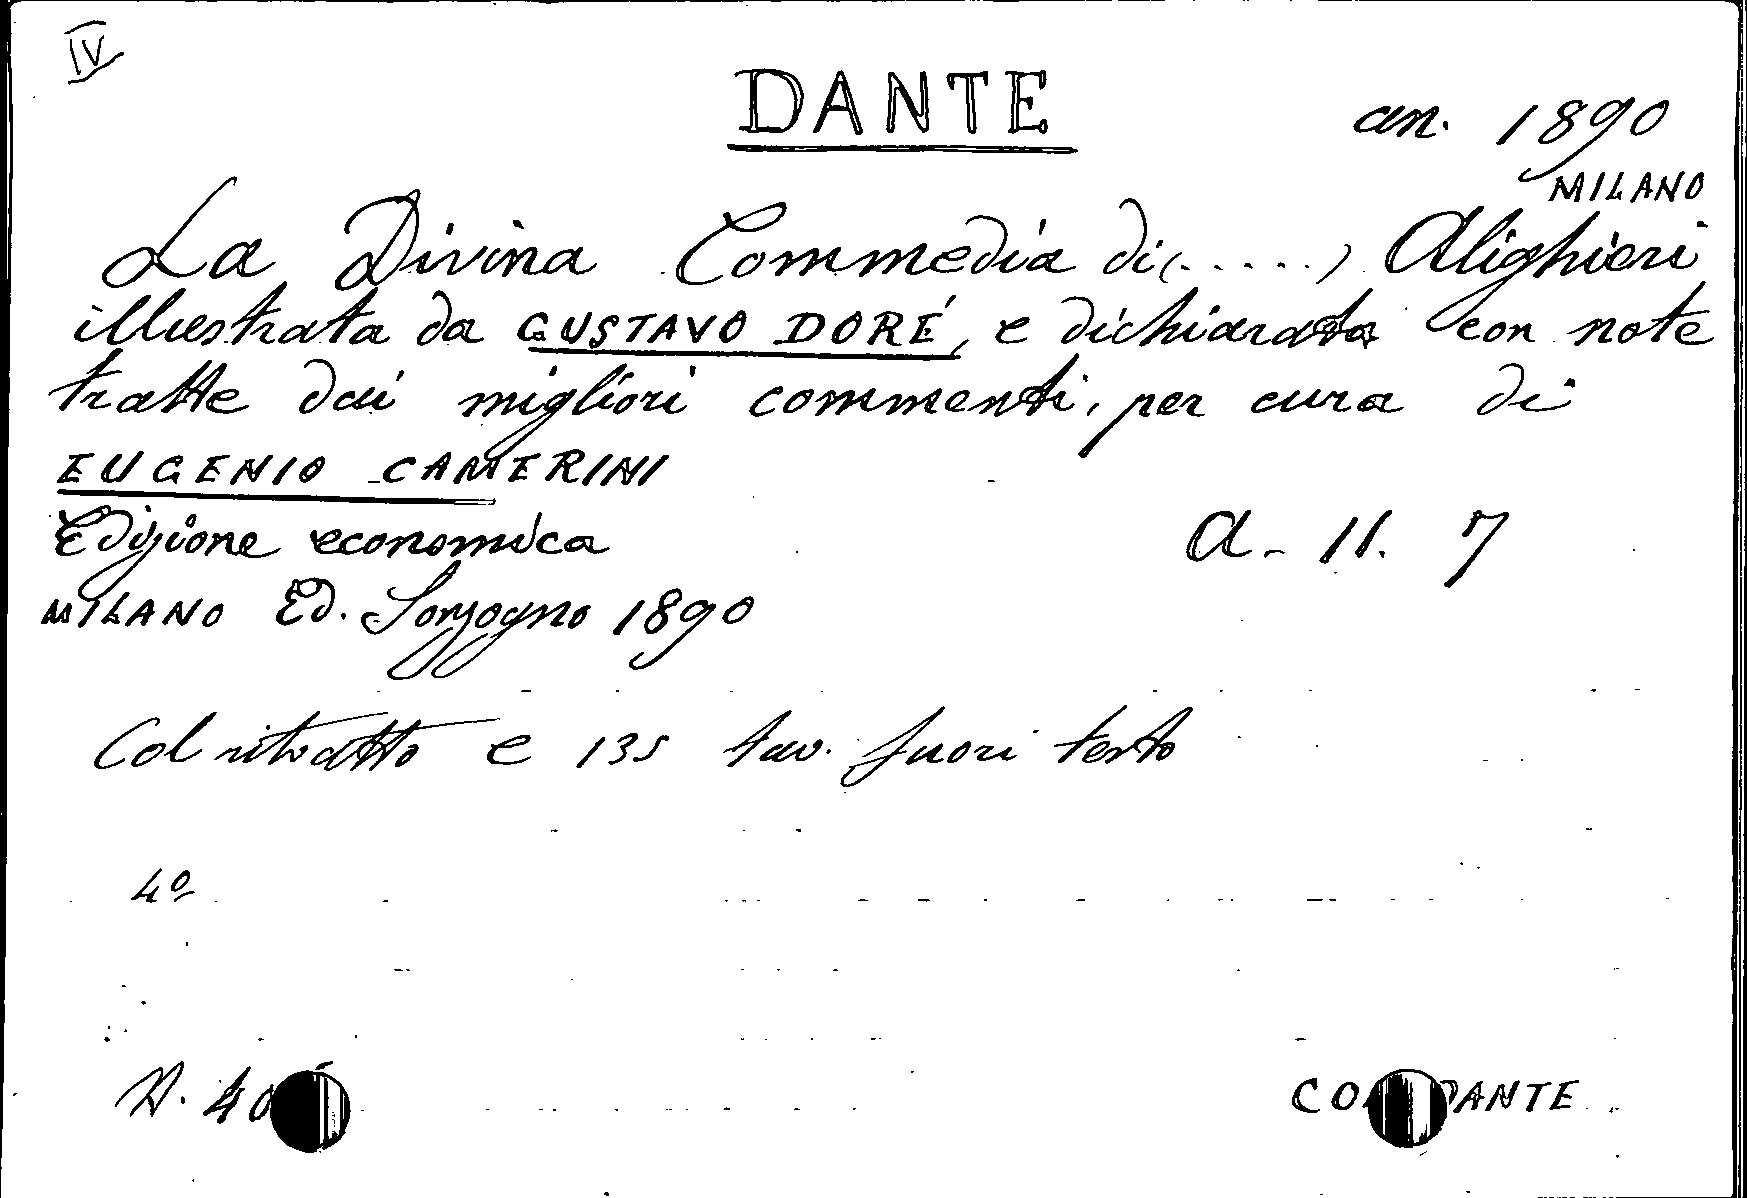 IV
DANTE
an. 1890
MILANO
La Divina Commedia di (.....) Alighieri
illustrata da GUSTAVO DORÉ, e dichiarata con note
tratte dai migliori commenti, per cura di
EUGENIO CAMERINI
Edizione economica
A- 11. 7
MILANO Ed. Sonzogno 1890
Col ritratto e 135 tav. fuori testo
4º
N. 40
DANTE